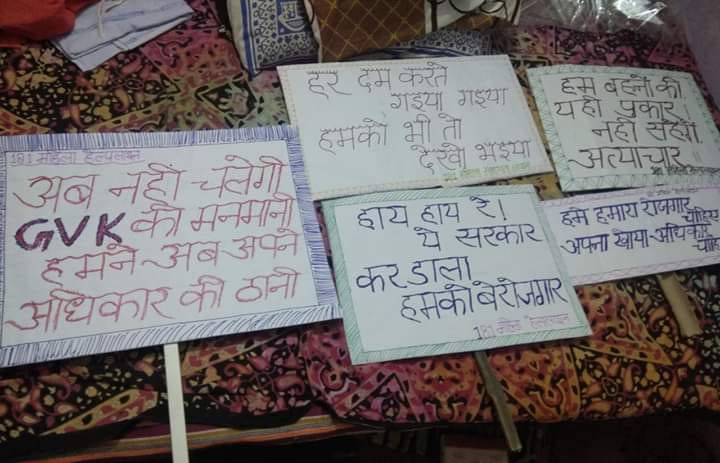 181 महिला हेल्पलाइन
अब नहीं चलेगी
GVK की मनमानी
हमने अब अपने
अधिकार की ठानी
हर दम करते
गइया गइया
हमको भी तो
देखो भइया
हाय हाय रे।
ये सरकार
कर डाला
हमको बेरोजगार
181 महिला हेल्पलाइन
हम बहनों की
यही पुकार
नहीं सहेंगे
अत्याचार
181 महिला हेल्पलाइन
हम हमारा रोजगार चाहिए
अपना खोया अधिकार चाहिए